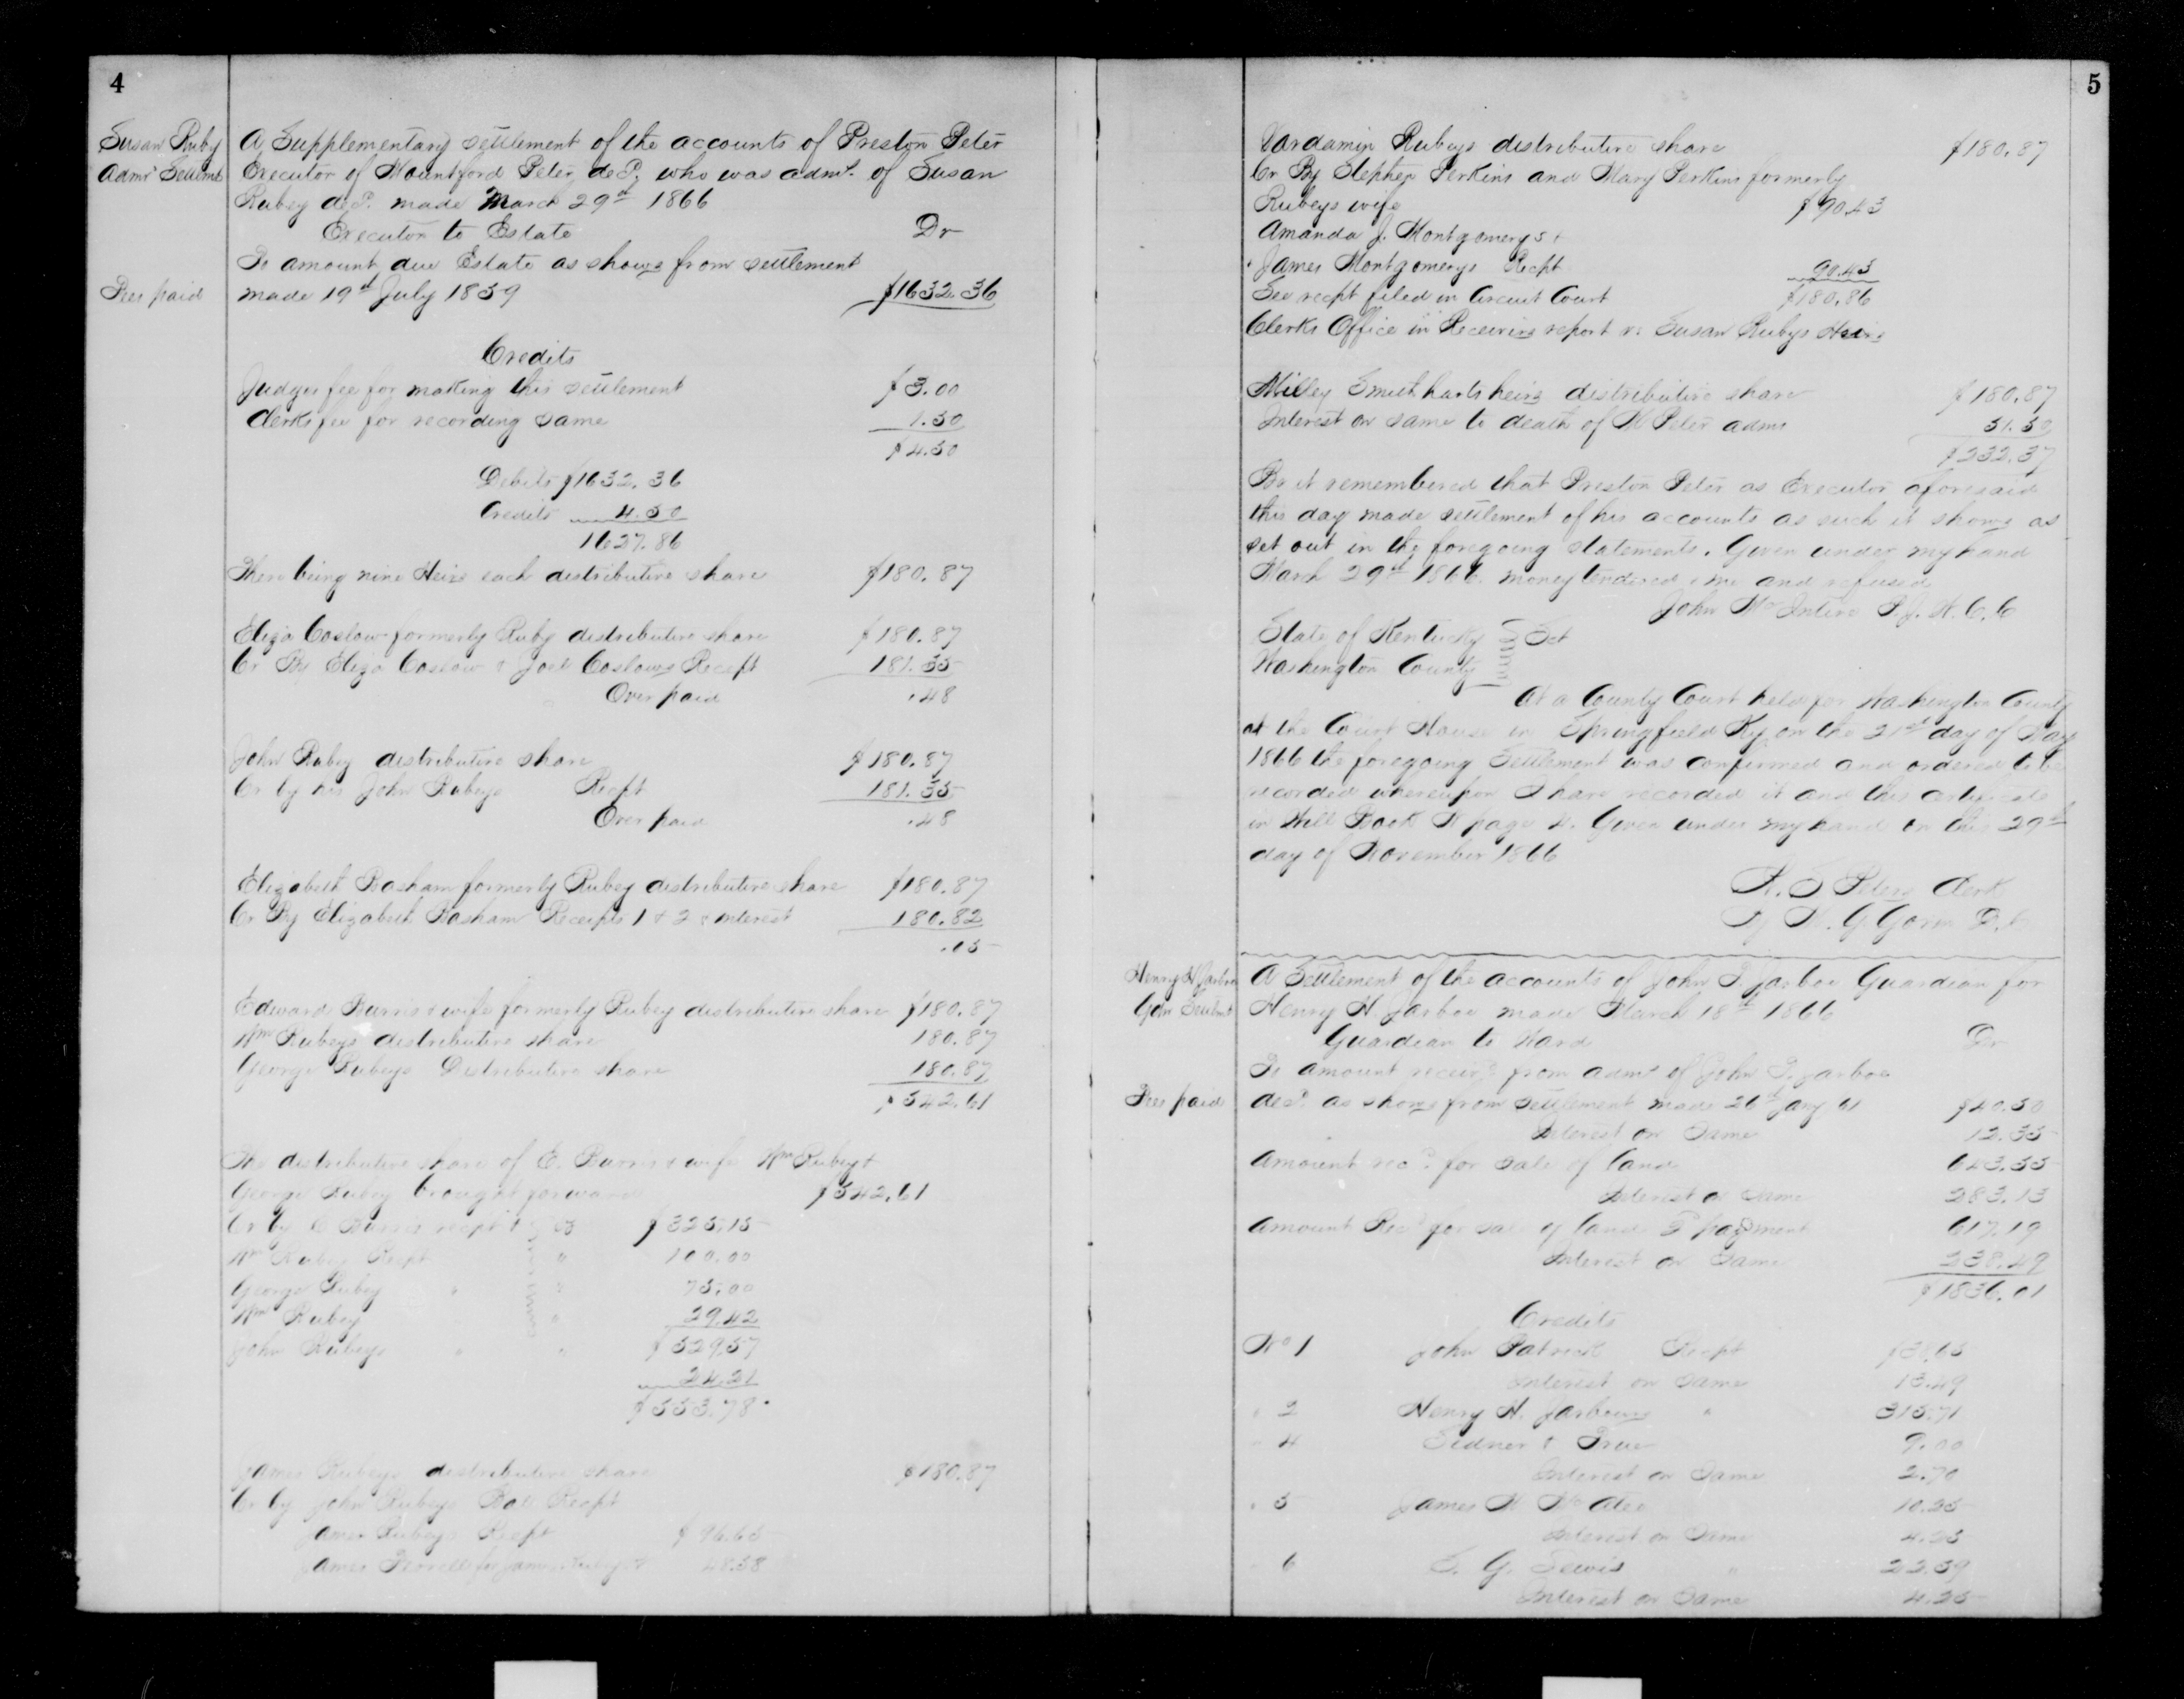 4
Susan Ruby
Admr Settlmt
A Supplementary settlement of the accounts of Preston Peter
Executor of Mountford Peter, decd. who was admr. of Susan
Rubey decd. made March 29th 1866
Executor to Estate Dr
To amount due Estate as shows from settlement
Fees paid
made 19th July 1859 $1632.36
Credits
Judges fee for making this settlement $3.00
Clerks fee for recording same 1.50
$4.50
Debits $1632.36
Credits 4.50
1627.86
There being nine Heirs each distributive share $180.87
Eliza Coslow formerly Ruby distributive share $180.87
Cr By Eliza Coslow & Joel Coslows Recept 181.35
Over paid .48
John Rubey distributive share $180.87
Cr by his John Rubeys Recpt 181.35
Over paid .48
Elizabeth Basham formerly Rubey distributive share $180.87
Cr By Elizabeth Basham Receipts 1 & 2 & interest 180.82
.05
Edward Burris & wife formerly Rubey distributive share $180.87
Wm Rubeys distributive share 180.87
George Rubeys Distributive share 180.87
$542.61
The distributive share of E. Burris & wife Wm Rubey &
George Rubey brought forward $542.61
Cr by E Burris recpt $325.15
Wm Rubey Recpt " 100.00
George Rubey " " 75.00
Wm Rubey " 29.42
John Rubeys " " $529.57
24.21
$553.78
James Rubeys distributive share $180.87
Cr by John Rubeys Bal Recpt
James Rubeys Recpt $96.65
James for James 48.58
5
Vardamin Rubeys distributive share $180.87
Cr By Stephen Perkins and Mary Perkins formerly
Rubeys wife $90.43
Amanda J. Montgomerys &
James Montgomerys Recpt 90.43
See recpt filed in Circuit Court $180.86
Clerks Office in Receivers report vs Susan Rubys Heirs
Milley Smithharts heirs distributive share $180.87
Interest on same to death of M Peter admr 51.50
$232.37
Be it remembered that Preston Peter as Executor aforesaid
this day made settlement of his accounts as such it shows as
set out in the foregoing statements. Given under my hand
March 29th 1866. money tendered me and refused
John McIntire P. J. W. C. C
State of Kentucky } Sct
Washington County
At a County Court held for Washington County
at the Court House in Springfield Ky on the 21st day of May
1866 the foregoing Settlement was confirmed and ordered to be
recorded whereupon I have recorded it and this certificate
in Will Book page 4. Given under my hand on this 29th
day of November 1866
Peters Clerk
By G D.C
Henry H Jarboe
Gdn Settlmt
A Settlement of the accounts of John Jarboe Guardian for
Henry H. Jarboe made March 18th 1866
Guardian to Ward Dr
To amount recievd from admr of John Jarboe
Fees paid
decd. as shows from settlement made 26th Jany 61 $40.50
Interest on Same 12.35
Amount recd. for sale of land 643.35
Interest on Same 283.13
Amount Recd for sale of land payment 617.19
Interest on Same 238.49
$1836.01
Credits
No 1 John Patrick Recpt $38.65
Interest on Same 13.49
" 2 Henry H. Jarboes " 315.71
" 4 Sidner & True 9.00
Interest on Same 2.70
" 5 James Atee 10.25
Interest on Same 4.25
" 6 G. Lewis " 22.59
Interest on Same 4.25